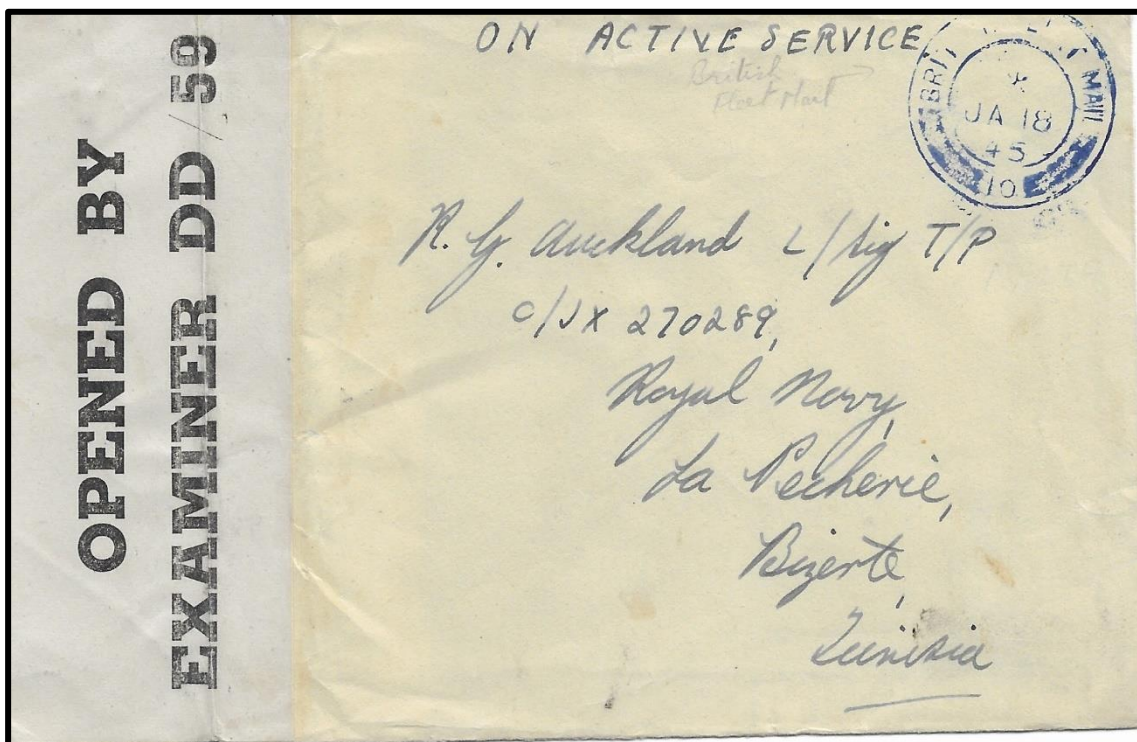 OPENED BY
EXAMINER DD/59
ON ACTIVE SERVICE
British
Fleet Mail
BRIT MAIL
JA 18
45
10
R. G. Auckland L/Sig T/P
C/JX 270289,
Royal Navy,
La Pecherie,
Bizerte,
Tunisia